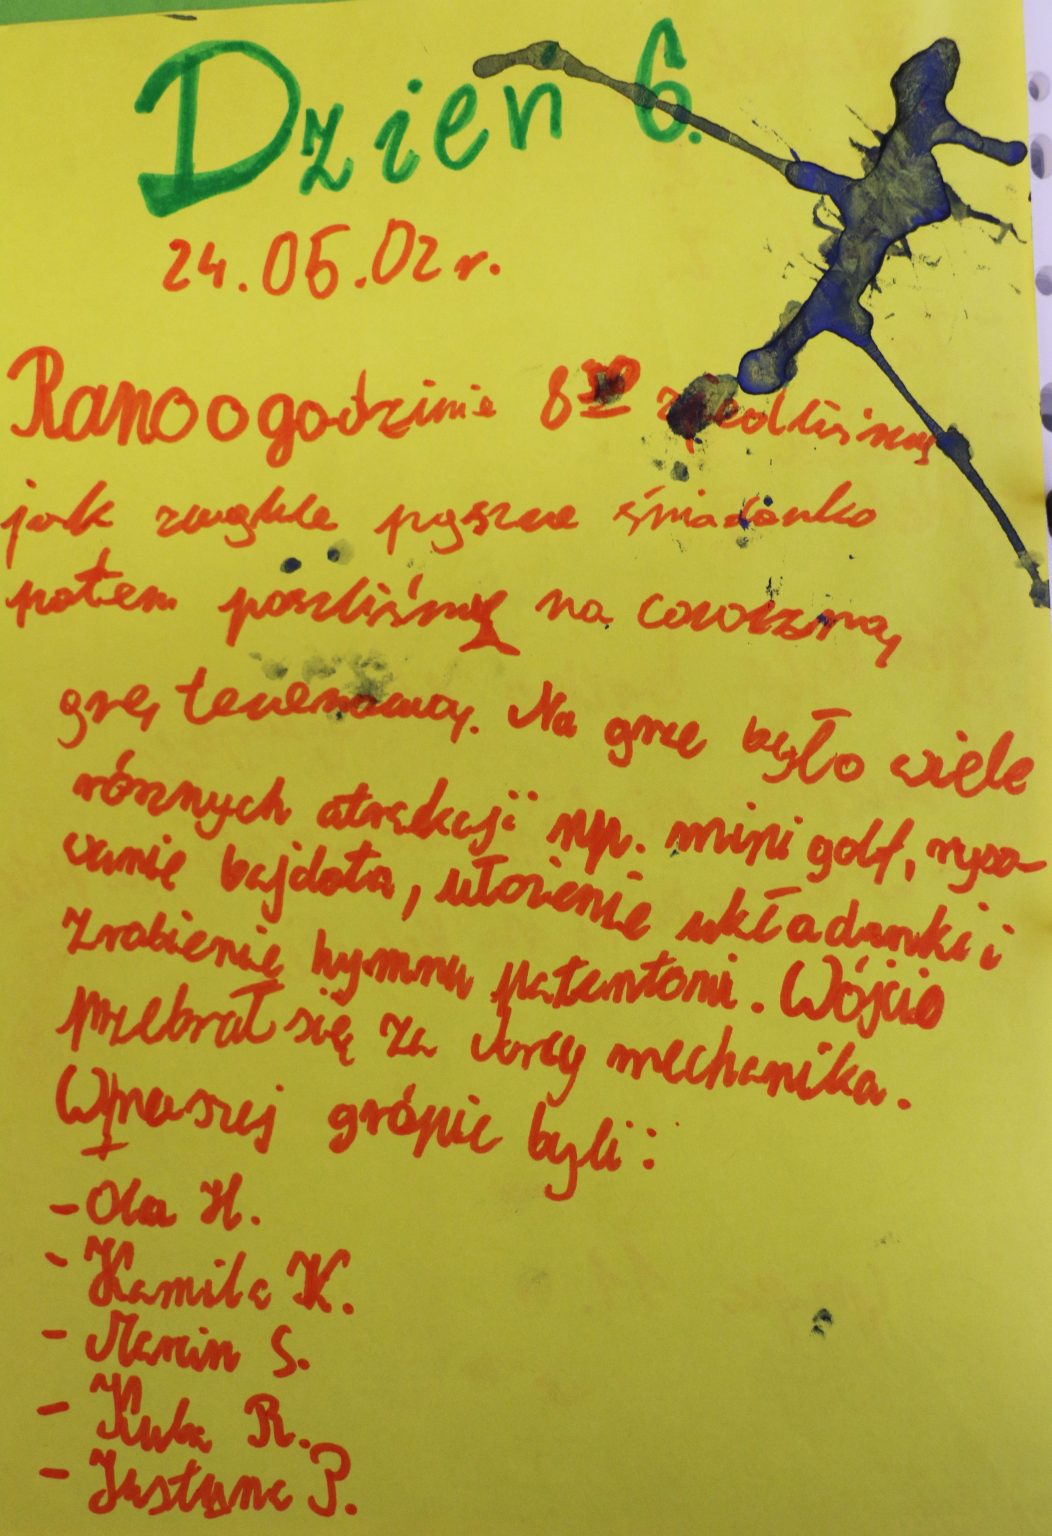 Dzien 6.
24.05.02 r.
Rano o godzinie 8 zjedliśmy
jak zwykle pyszne śniadanko
potem poszliśmy na coroczną
grę terenową. Na grze było wiele
róznych atrakcji np. mini golf, ryso-
wanie bajdota, ułozenie układanki i
zrobienie hymnu patentoni. Wójcio
przebrał się za mechanika.
W naszej grópie byli:
- Ola H.
- Kamila K.
- Marcin S.
- Kuba R.
- Justyna P.